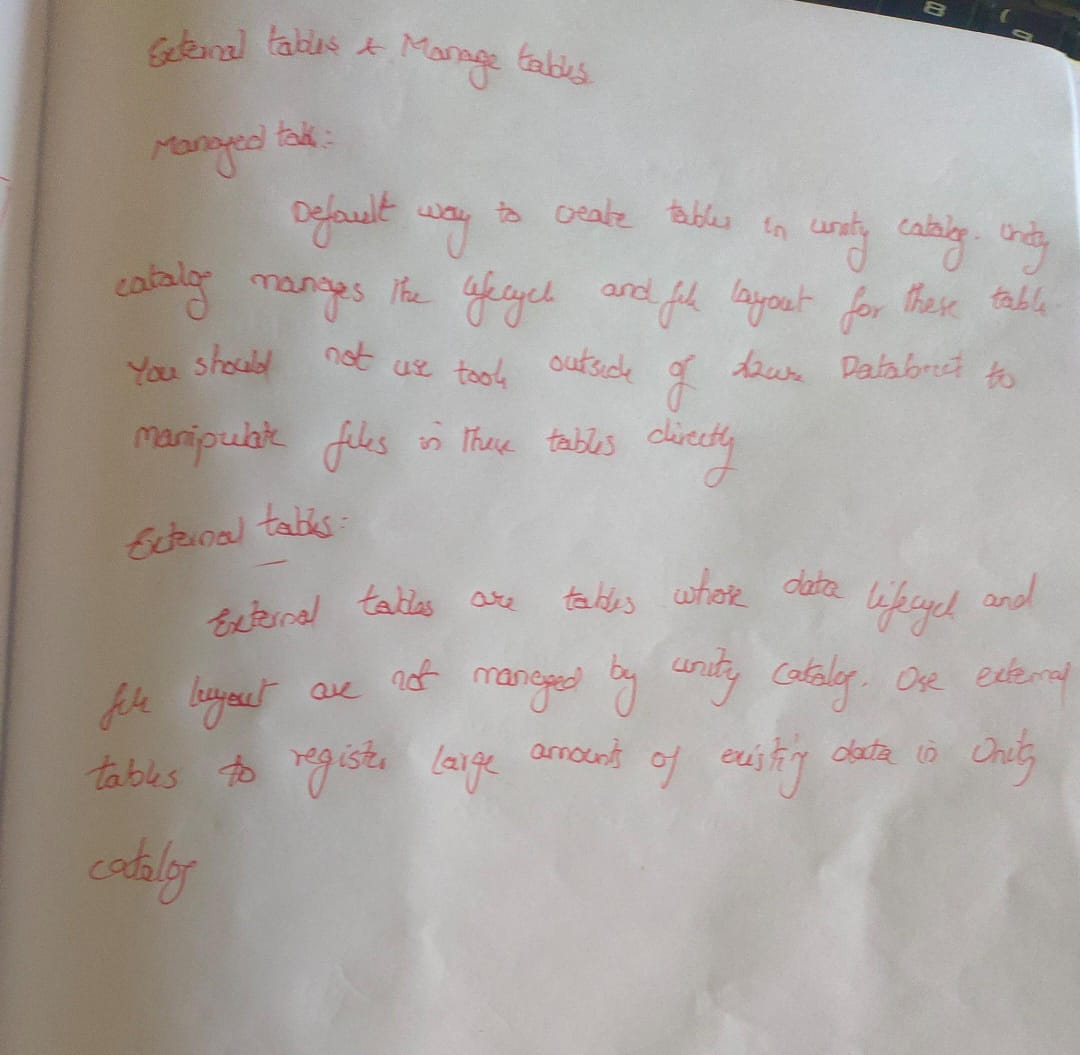 8 (
9
External tables & Manage tables
Managed tab:
Default way to create tables in unity catalog. Unity
catalog manages the lifecycl and file layout for these table.
You should not use tools outside of Azure Databrict to
manipulate files in these tables directly
External tables:
External tables are tables whose data lifecycl and
file layout are not managed by unity catalog. Use external
tables to register large amounts of existig data in Unity
catalog